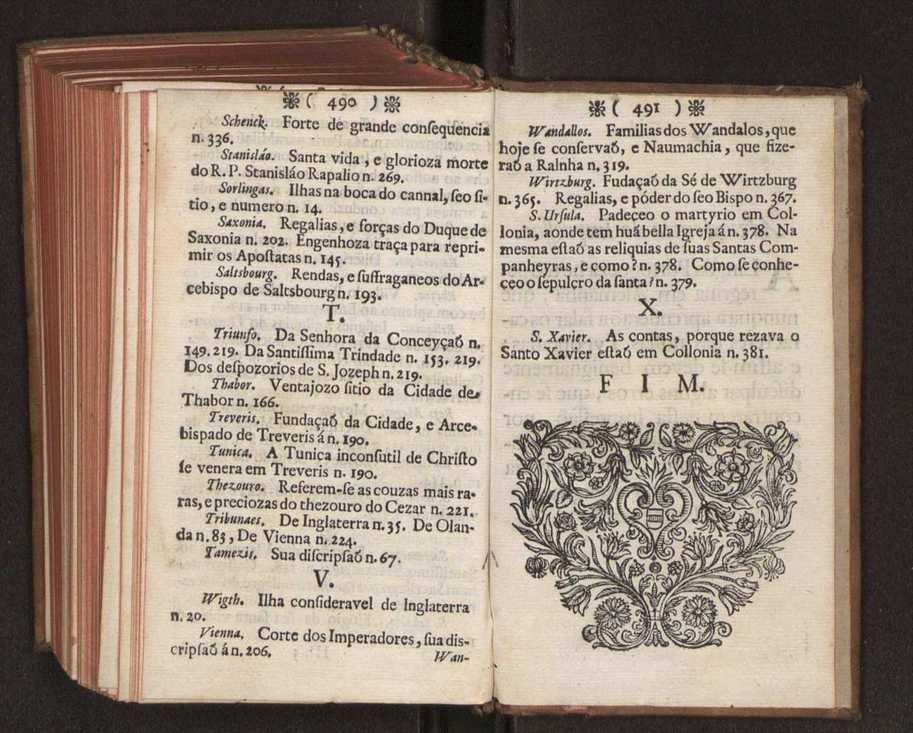 ( 490 )
Schenck. Forte de grande conſequencia
n. 336.
Stanisláo. Santa vida, e glorioza morte
do R. P. Stanisláo Rapalio n. 269.
Sorlingas. Ilhas na boca do cannal, ſeo ſi-
tio, e numero n. 14.
Saxonia. Regalias, e forças do Duque de
Saxonia n. 202. Engenhoza traça para repri-
mir os Apoſtatas n. 145.
Saltsbourg. Rendas, e ſuffraganeos do Ar-
cebispo de Saltsbourg n. 193.
T.
Triunfo. Da Senhora da Conceyçaõ n.
149. 219. Da Santiſſima Trindade n. 153. 219.
Dos deſpozorios de S. Jozeph n. 219.
Thabor. Ventajozo ſitio da Cidade de
Thabor n. 166.
Treveris. Fundaçaõ da Cidade, e Arce-
bispado de Treveris á n. 190.
Tunica. A Tunica inconſutil de Chriſto
ſe venera em Treveris n. 190.
Thezouro. Referem-ſe as couzas mais ra-
ras, e preciozas do thezouro do Cezar n. 221.
Tribunaes. De Inglaterra n. 35. De Olan-
da n. 83, De Vienna n. 224.
Tamezis. Sua diſcripſaõ n. 67.
V.
Wigth. Ilha conſideravel de Inglaterra
n. 20.
Vienna. Corte dos Imperadores, ſua diſ-
cripſaõ á n. 206.
Wan-
( 491 )
Wandallos. Familias dos Wandalos, que
hoje ſe conſervaõ, e Naumachia, que fize-
raõ a Ralnha n. 319.
Wirtzburg. Fudaçaõ da Sé de Wirtzburg
n. 365. Regalias, e póder do ſeo Biſpo n. 367.
S. Urſula. Padeçeo o martyrio em Col-
lonia, aonde tem huã bella Igreja á n. 378. Na
mesma eſtaõ as reliquias de ſuas Santas Com-
panheyras, e como? n. 378. Como ſe conhe-
ceo o ſepulçro da ſanta? n. 379.
X.
S. Xavier. As contas, porque rezava o
Santo Xavier eſtaõ em Collonia n. 381.
F I M.